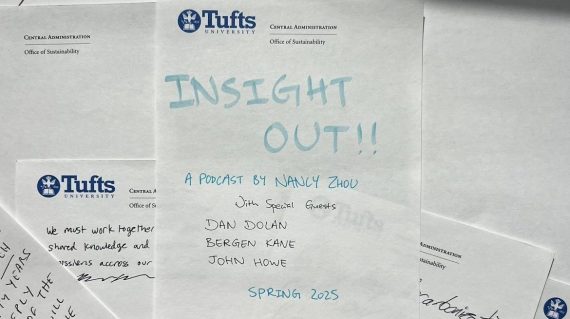 CENTRAL ADMINISTRATION
Office of Sustainability
Tufts
UNIVERSITY
CENTRAL ADMINISTRATION
Office of Sustainability
INSIGHT
OUT!!
A PODCAST BY NANCY ZHOU
With Special Guests
DAN DOLAN
BERGEN KANE
JOHN HOWE
SPRING 2025
Tufts
UNIVERSITY
CENTRAL
Office of
We must work together
shared knowledge and
accross our
YEARS
OF THE
Tufts
ADMINISTRATION